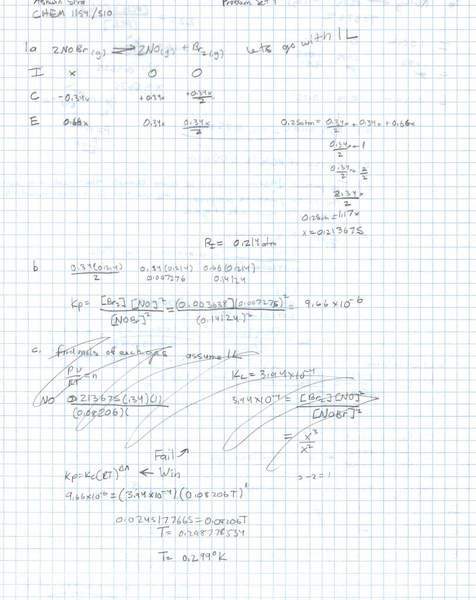 CHEM 1154/S10
1a 2NOBr(g) ⇌ 2NO(g) + Br2(g) Lets go with 1L
I x 0 0
C -0.34x +0.34x +0.34x/2
E 0.66x 0.34x 0.34x/2
0.25atm = 0.34x/2 + 0.34x + 0.66x
0.34x/2 + 1
0.34x/2 + 2/2
2.34x/2
0.25atm = 1.17x
x = 0.213675
= 0.214 atm
b 0.34(0.214)/2 0.34(0.214) 0.66(0.214)
0.07276 0.14124
Kp = [Br2][NO]²/[NOBr]² = (0.003638)(0.007276)²/(0.14124)² = 9.66 x 10⁻⁶
c. find mols of each gas assume 1L
PV/RT = n
Kc = 3.94x10⁻⁴
NO 0.213675(.34)(1)/(0.08206)(
3.94x10⁻⁴ = [Br2][NO]²/[NOBr]²
= x³/x²
Fail
Kp = Kc(RT)^Δn ← Win
3-2=1
9.66x10⁻⁶ = (3.94x10⁻⁴)(0.08206T)¹
0.0245177665 = 0.08206T
T = 0.298778534
T = 0.299°K